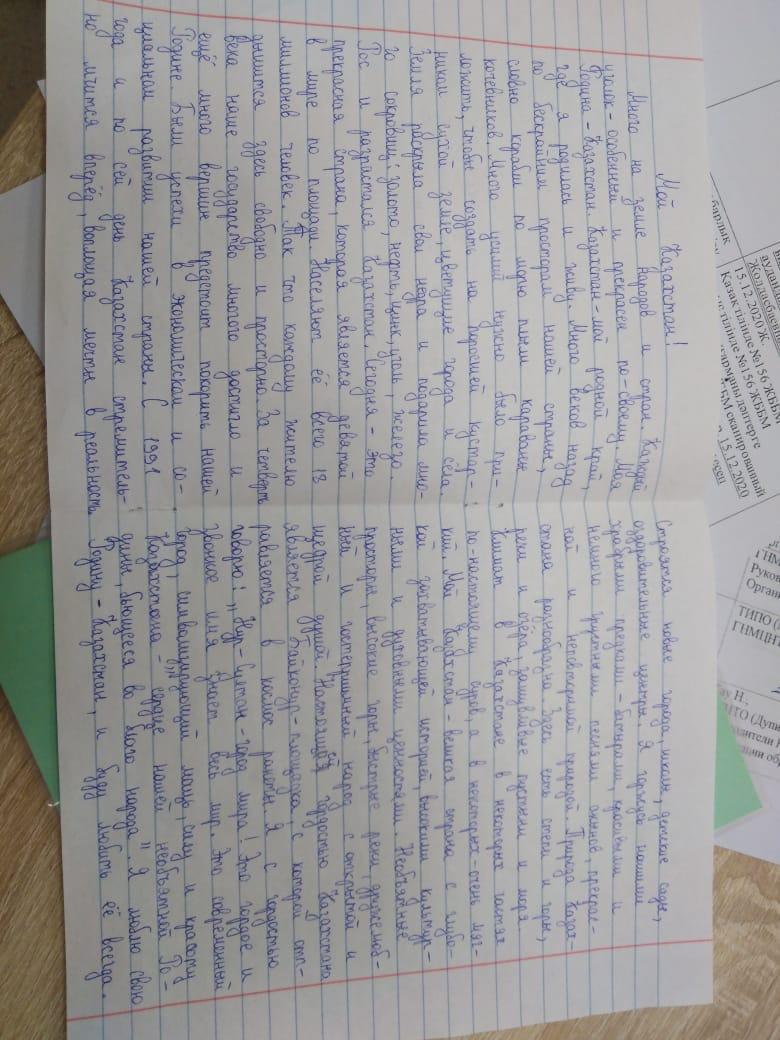 Мой Казахстан!
Много на земле народов и стран. Каждый
уголок - особенный и прекрасен по-своему. Моя
Родина - Казахстан. Казахстан - мой родной край,
где я родилась и живу. Много веков назад
по бескрайним просторам нашей страны,
словно корабли по морю плыли караваны
кочевников. Много усилий нужно было при-
ложить, чтобы создать на поросшей кустар-
никам сухой земле, цветущие города и села.
Земля раскрыла свои недра и подарила мно-
го сокровищ: золото, нефть, цинк, уголь, железо
Рос и разрастался Казахстан. Сегодня - это
прекрасная страна, которая является девятой
в мире по площади. Населяют её всего 18
миллионов человек. Так что каждому жителю
дышится здесь свободно и просторно. За четверть
века наше государство многого достигло и
ещё много вершин предстоит покорить нашей
Родине. Были успехи в экономическом и со-
циальном развитии нашей страны. С 1991
года и по сей день Казахстан стремитель-
но мчится вперёд, воплощая мечты в реальность
Строятся новые города, школы, детские сады,
оздоровительные центры. Я горжусь нашими
храбрыми предками - батырами, красивыми и
немного грустными песнями акынов, прекрас-
ной и неповторимой природой. Природа Казах-
стана разнообразна. Здесь есть степи и горы,
реки и озёра, засушливые пустыни и моря
Климат в Казахстане в некоторых частях
по-настоящему суров, а в некоторых - очень мяг-
кий. Мой Казахстан - великая страна с глубо-
кой захватывающей историей, высокими культур-
ными и духовными ценностями. Необъятные
просторы, высокие горы, быстрые реки, дружелюб-
ный и гостеприимный народ с открытой и
щедрой душой. Настоящей гордостью Казахстана
является Байконур - площадка, с которой отп-
равляется в космос ракеты. Я с гордостью
говорю: "Нур-Султан - город мира! Это гордое и
звонкое имя знает весь мир. Это современный
город, символизирующий мощь, силу и красоту
Казахстана - сердце нашей необъятной Ро-
дины, бьющееся во благо народа". Я люблю свою
Родину - Казахстан, и буду любить её всегда.
барлық
15.12.2020 ж.
Қазақ тілінде №156 ЖББМ
с тілінде №156 ЖББМ
БМ сканированный
15.12.2020
Руков
Органи
ТИПО (
ГНМЦИТ